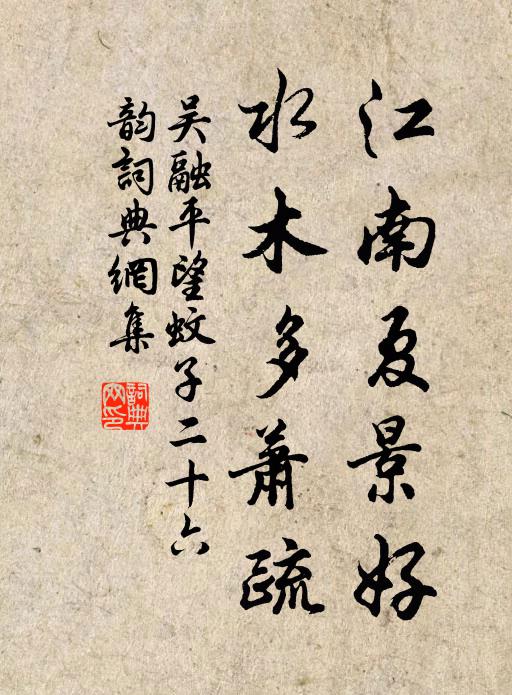 江南夏景好
水木多蕭疏
吴融平望蚊子二十六
韵詞典網集
詞典网印